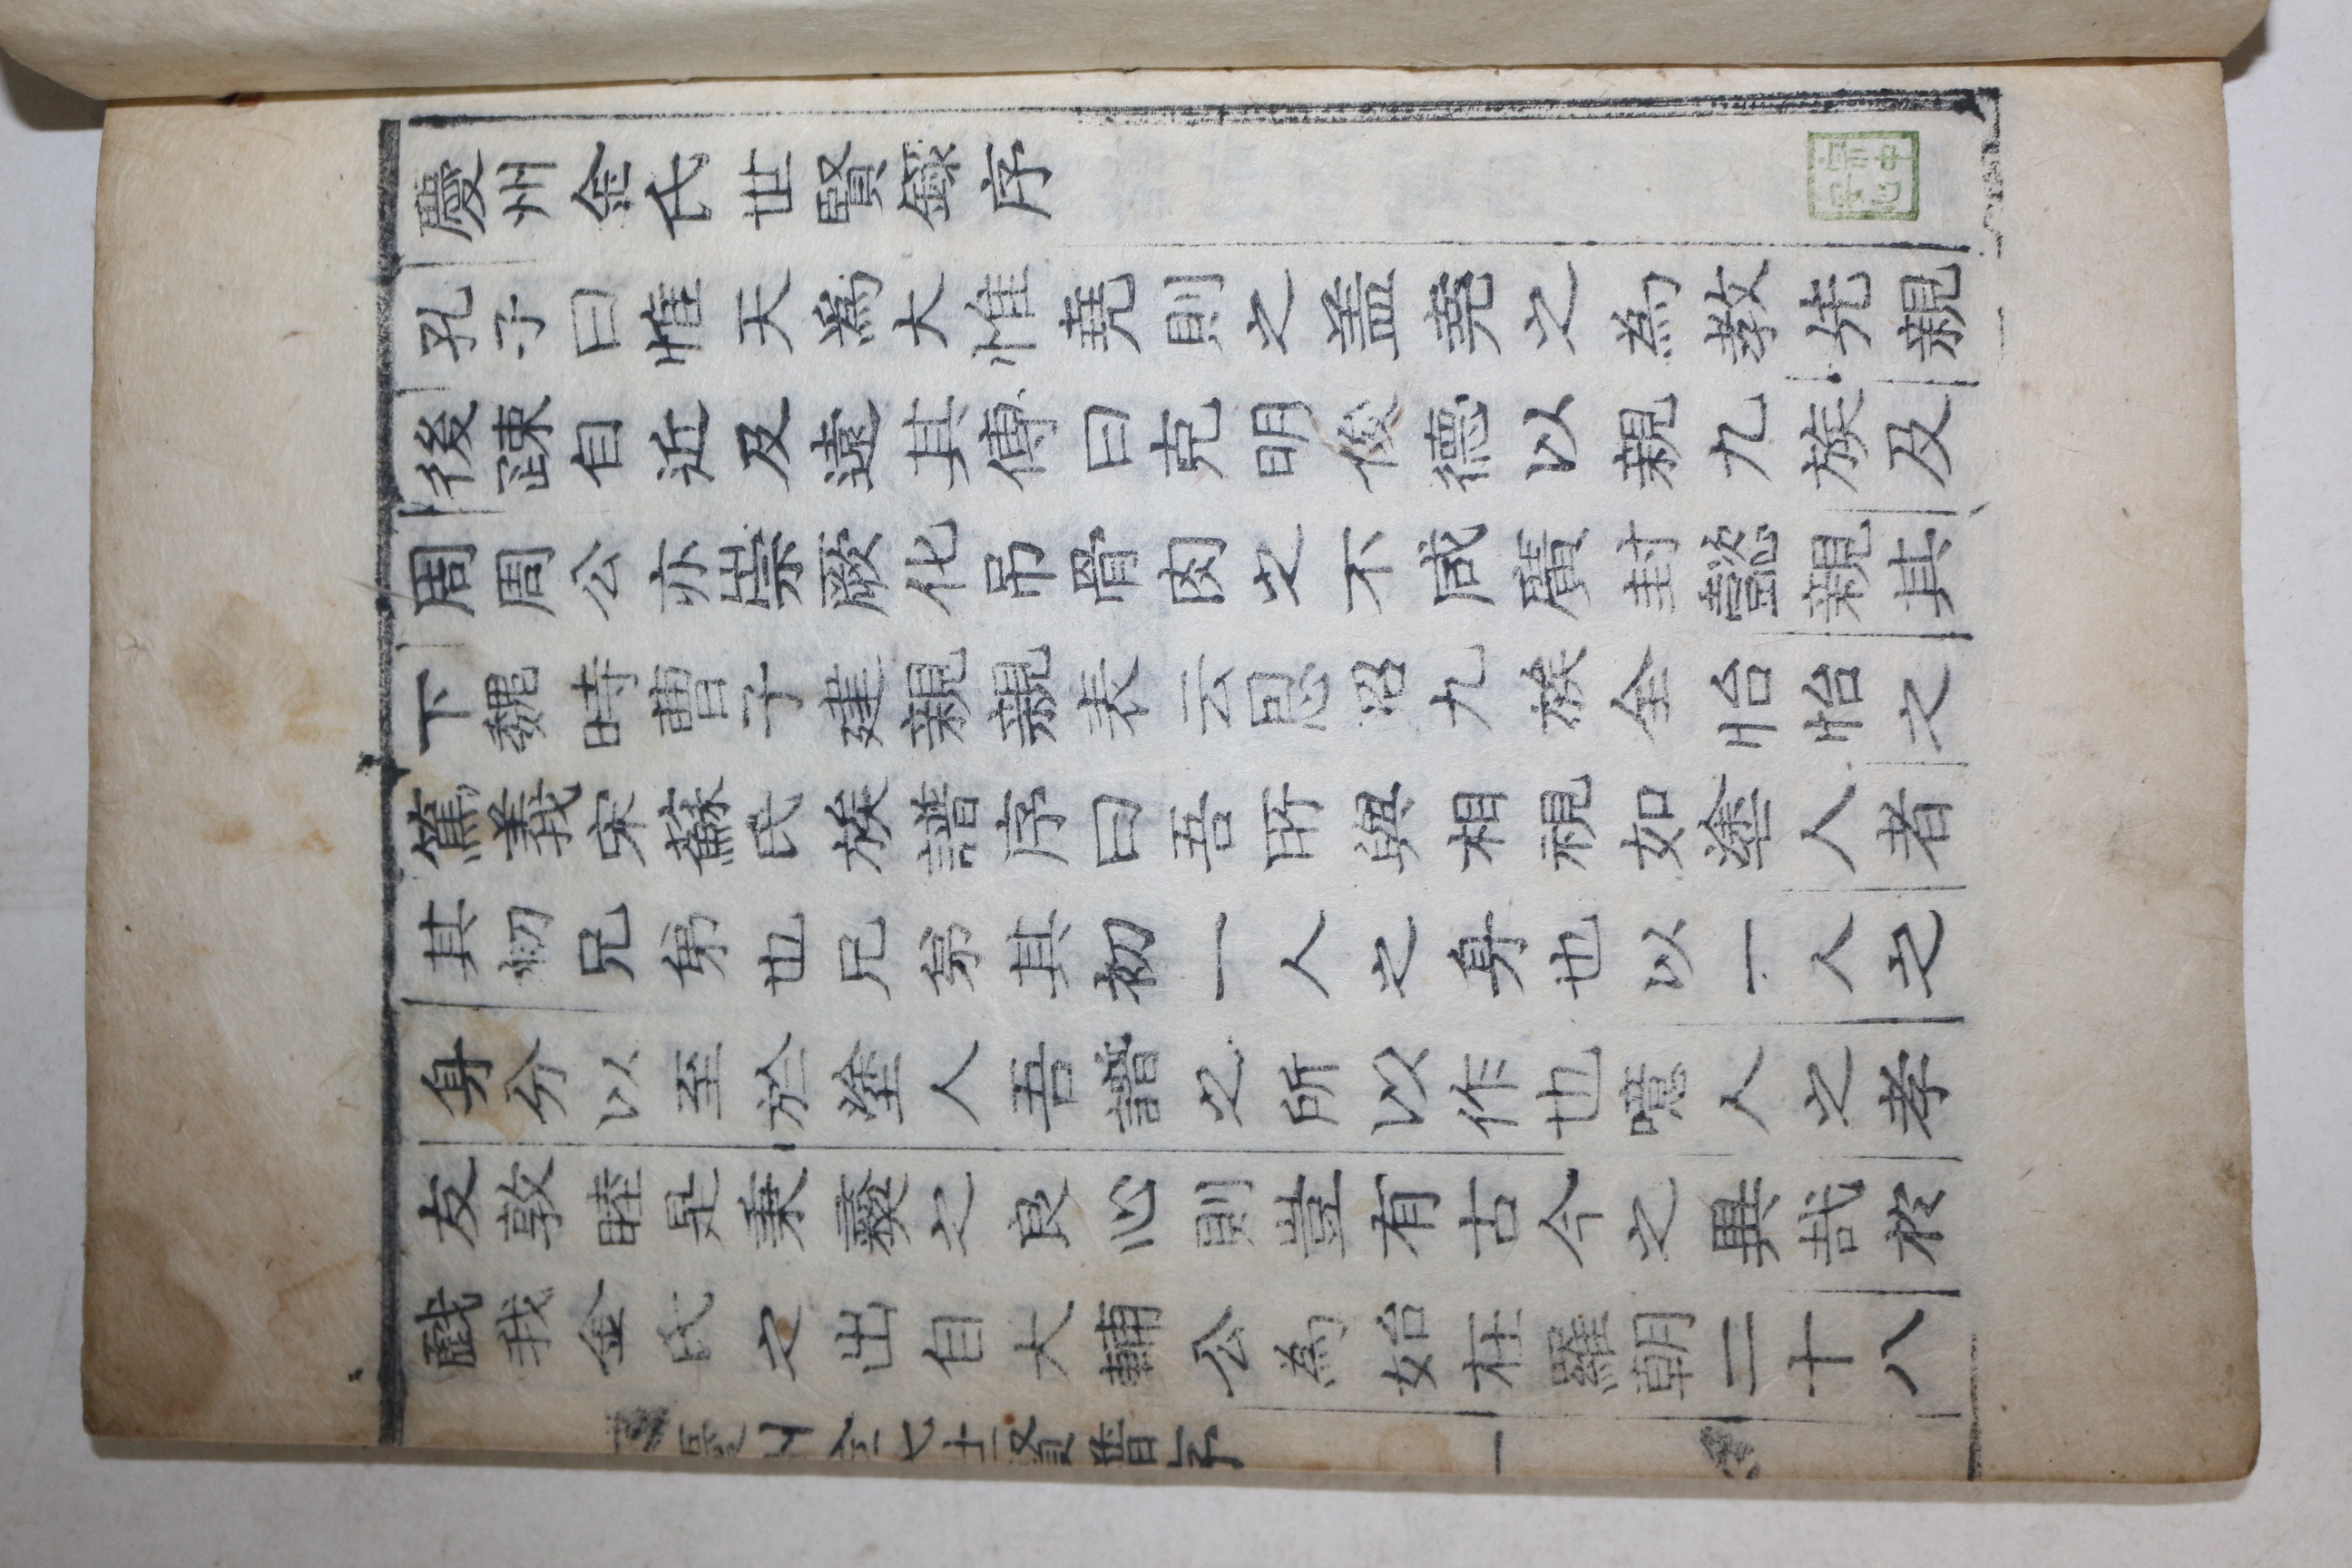 慶州金氏世賢錄序
孔子曰惟天爲大惟堯則之盖堯之為教先親
後疎自近及遠其傳曰克明俊德以親九族及
周周公亦崇厥化吊骨肉之不咸廣封懿親其
下魏時曹子建親親表云恩沼九族全怡怡之
篤義宋蘇氏族譜序曰吾所與相視如塗人者
其初兄弟也兄弟其初一人之身也以一人之
身分以至於塗人吾譜之所以作也噫人之孝
友敦睦是秉彛之良心則豈有古今之異哉於
戱我金氏之出自大輔公為始在羅朝二十八
七十二賢譜序
一
宗中
安心